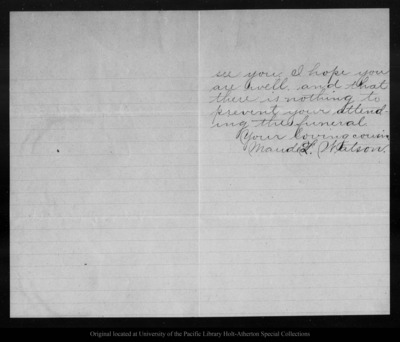 see you. I hope you
are well. and that
there is nothing to
prevent your attend-
ing the funeral
Your loving cousin
Maude L. Watson.
Original located at University of the Pacific Library Holt-Atherton Special Collections